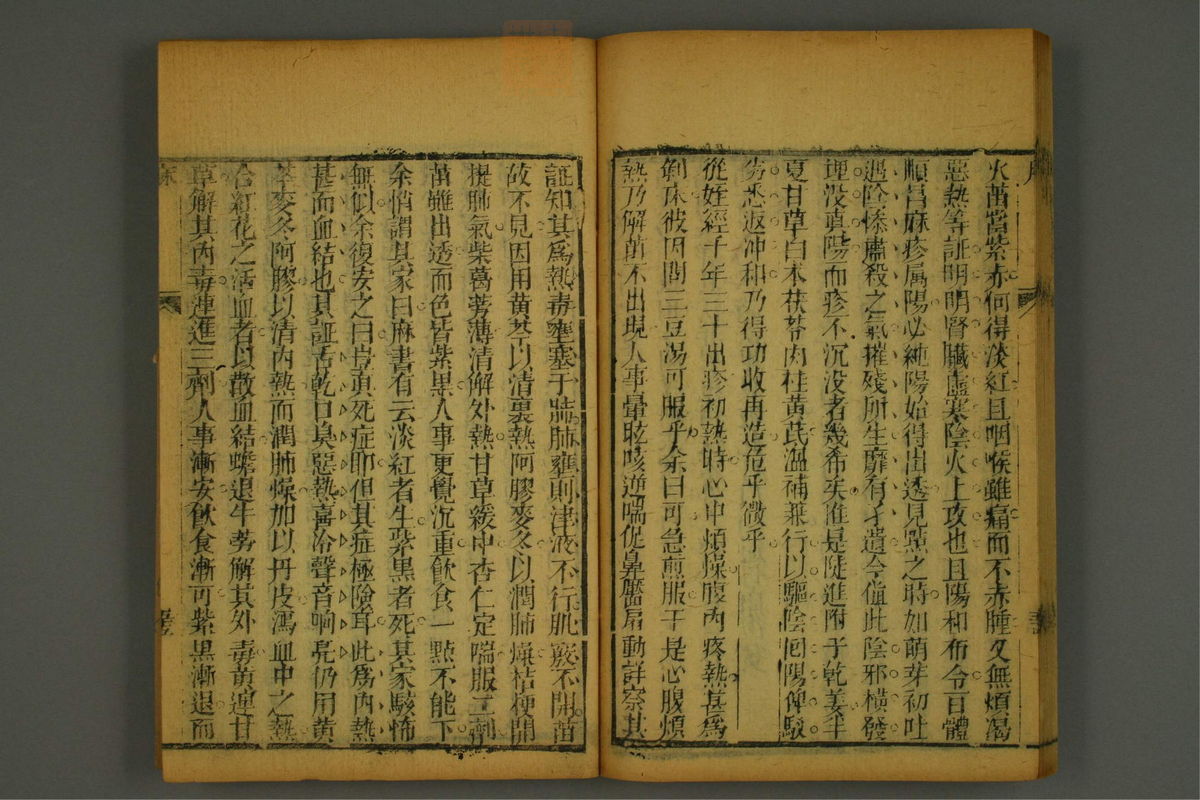 火苗當紫赤何得淡紅且咽喉雖痛而不赤腫又無煩渴
惡熱等証明明腎臟虛寒陰火上攻也且陽和布令百體
順昌麻疹屬陽必純陽始得出透見點之時如萌芽初吐
遇陰條肅殺之氣摧殘所生靡有孑遺今值此陰邪橫發
埋沒真陽而疹不沉沒者幾希矣惟是陡進附子乾姜半
夏甘草白朮茯苓肉桂黃芪溫補兼行以驅陰回陽俾駁
劣悉返冲和乃得功收再造危乎微乎
從姪經千年三十出疹初熱時心中煩燥腹內疼熱甚爲
劍床彼因問三豆湯可服乎余曰可急煎服于是心腹煩
熱乃解苗不出現人事暈眩咳逆喘促鼻靨扇動詳察其
証知其爲熱毒壅塞于肺肺壅則津液不行肌竅不開苗
故不見因用黃芩以清裏熱阿膠麥冬以潤肺燥桔梗開
提肺氣柴葛蒡薄清解外熱甘草緩中杏仁定喘服二劑
苗雖出透而色皆紫黑人事更覺沉重飲食一點不能下
余悄謂其家曰麻書有云淡紅者生紫黑者死其家駭怖
無似余復安之曰豈真死症耶但其症極險耳此爲內熱
甚而血結也其証舌乾口臭惡熱喜冷聲音响亮仍用黃
芩麥冬阿膠以清內熱而潤肺燥加以丹皮瀉血中之熱
合紅花之活血者以散血結蟾退牛蒡解其外毒黃連甘
草解其內毒連進三劑人事漸安飲食漸可紫黑漸退而